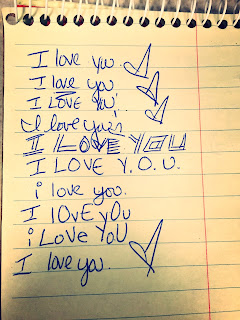 I love you.
I love you
I LOVE YOU!
I love you.
I LOVE YOU
I LOVE Y.O.U.
i love you.
I lOvE yOu
i LOVE YOU
I love you.